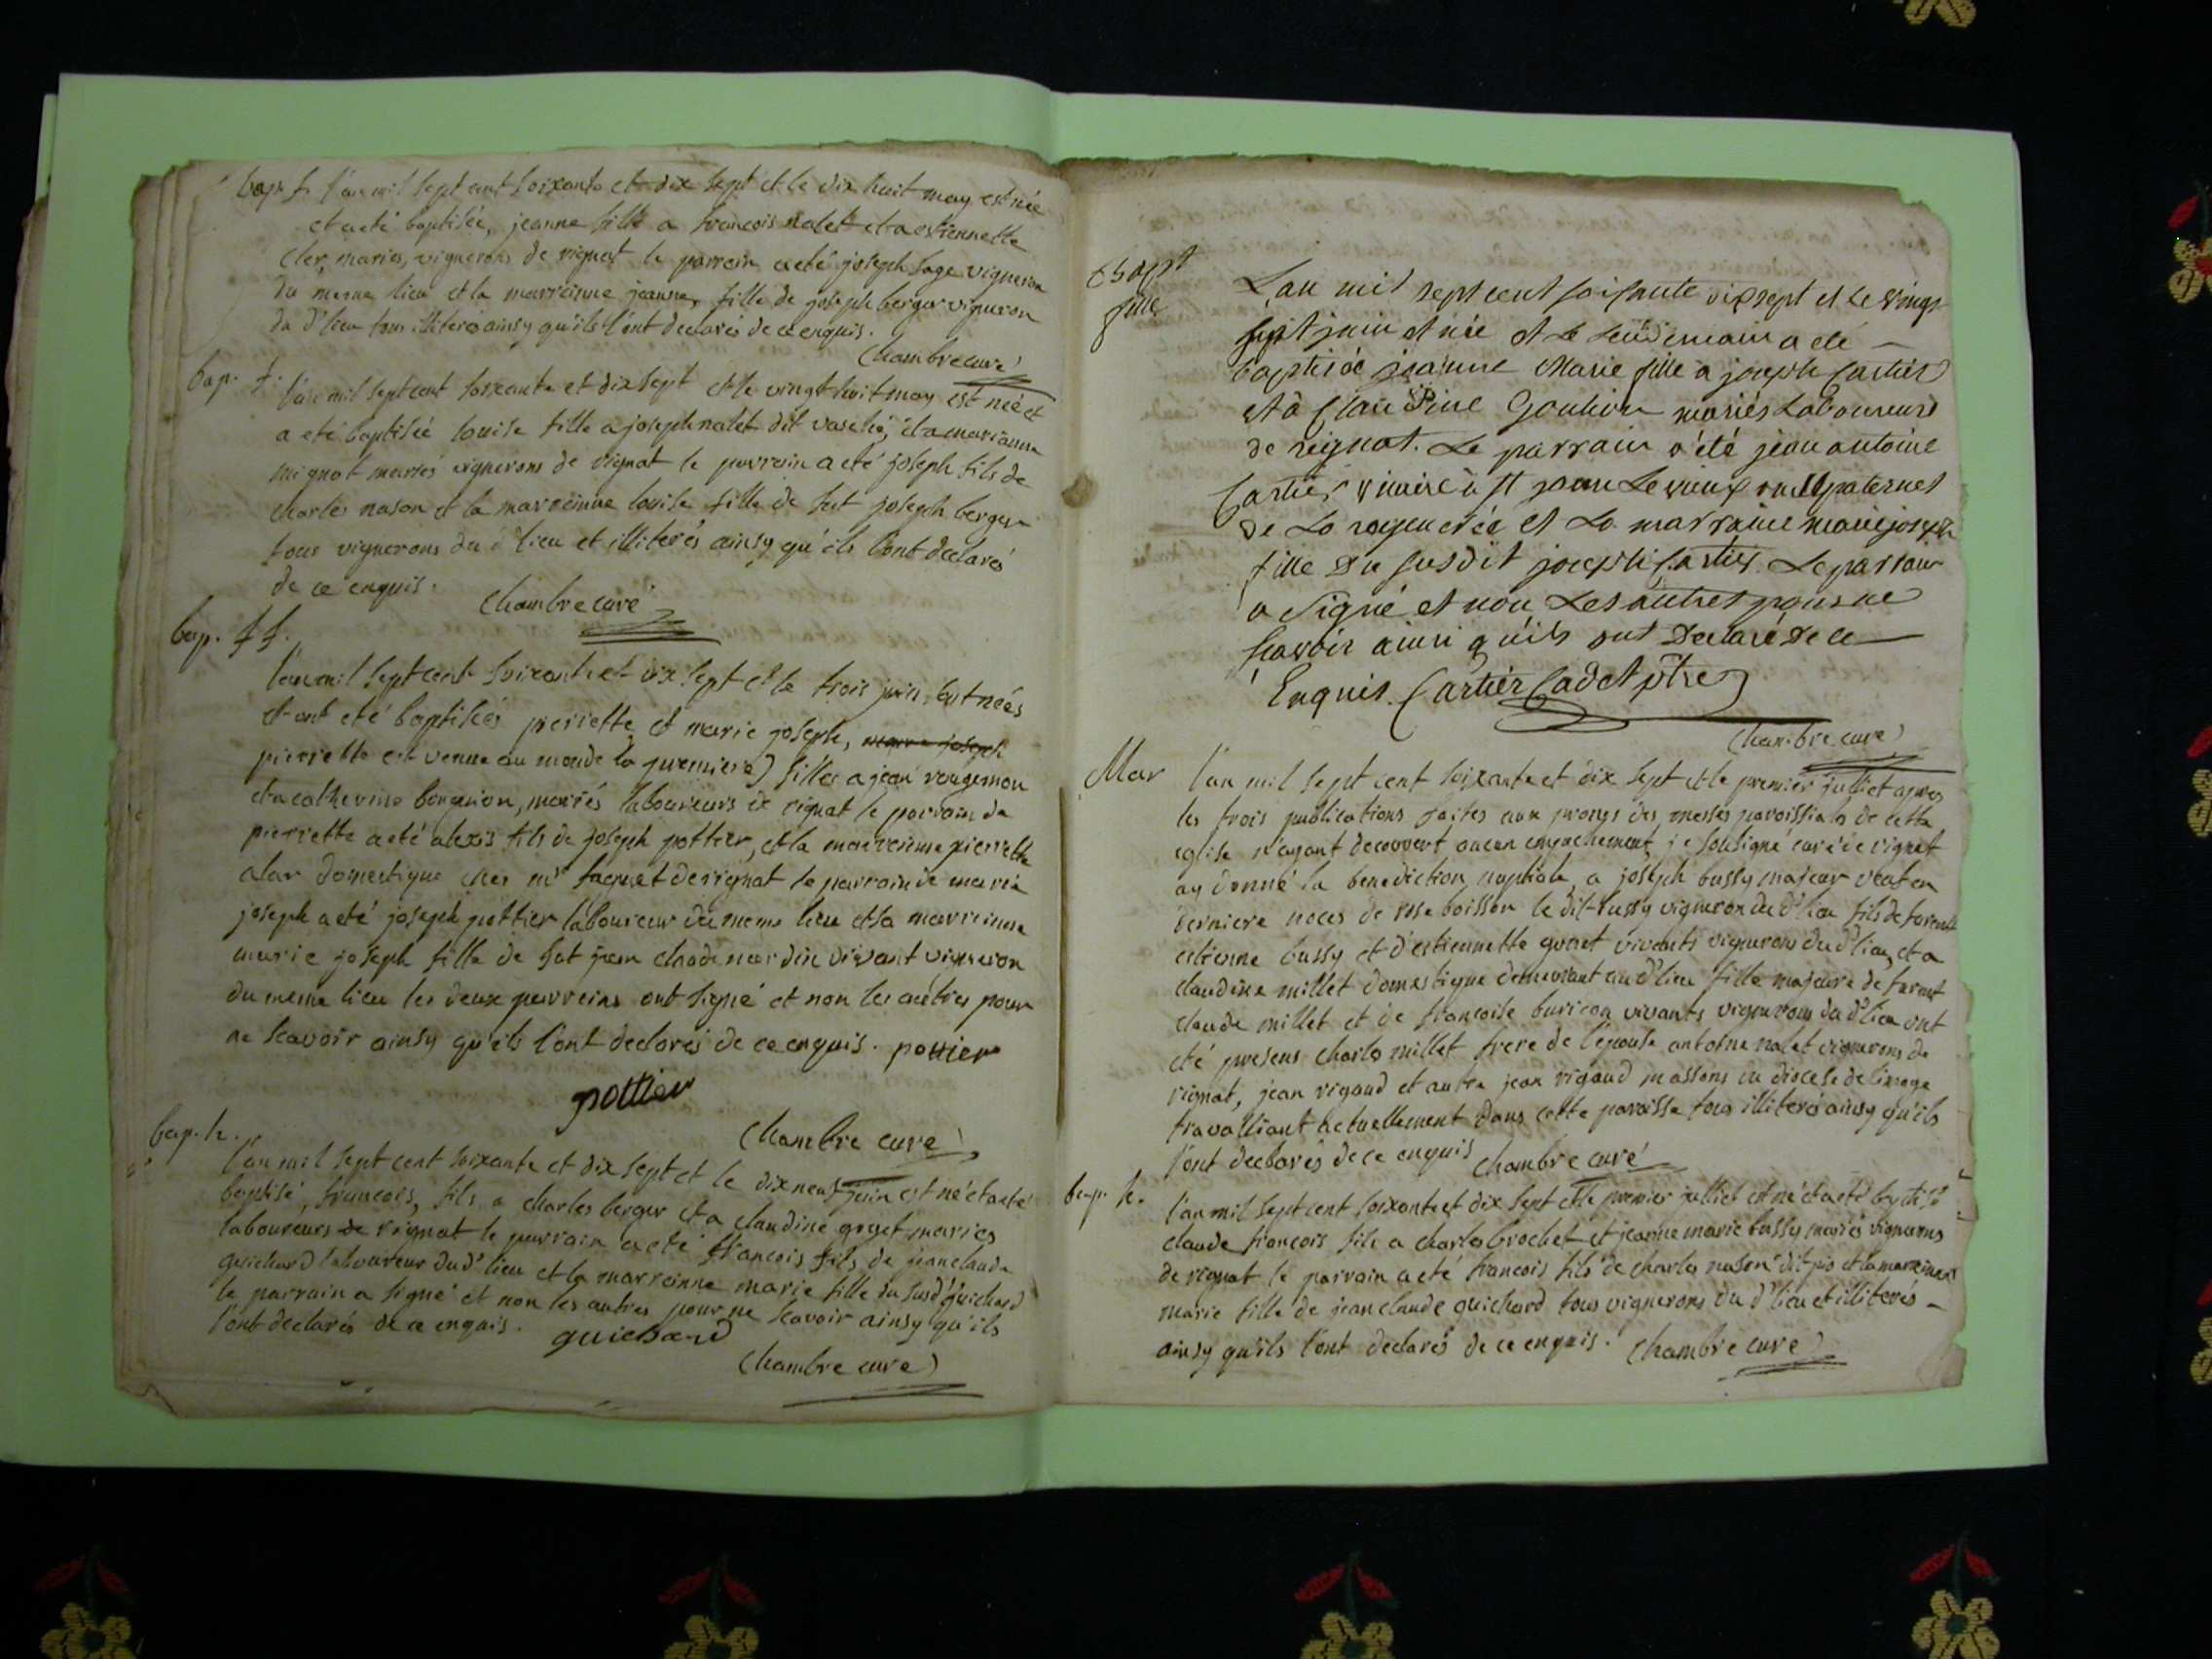 bap. f. l'an mil sept cent soixante et dix sept et le dix huit may est née
et a eté baptisée, jeanne fille a francois nalet et a estiennette
cler, mariés, vignerons de rignat le parrain a eté joseph sage vigneron
du mesme lieu et la marreinne jeanne, fille de joseph berger vigneron
du d'lieu tous illiterés ainsy qu'ils l'ont declarés de ce enquis.
Chambre curé
bap. f. l'an mil sept cent soixante et dix sept et le vingt huit may est née et
a eté baptisée louise fille a joseph nalet dit vaselié, et a marianne
mignot mariés vignerons de rignat le parrain a eté joseph fils de
charles nason et la marreinne louise fille de feu joseph berger
tous vignerons du d lieu et illiterés ainsy qu'ils l'ont declarés
de ce enquis. Chambre curé
bap. f f.
l'an mil sept cent soixante et dix sept et le trois juin sont neés
et ont eté baptisées pierrette et marie joseph, marie joseph
pierrette est venue au monde la premiere) filles a jean rougemon
et a catherine bonguion, mariés laboureurs de rignat le parrain de
pierrette a eté alexis fils de joseph pottier, et la marreinne pierrette
alar domestique ches mr faguet de rignat le parrain de marie
joseph a eté joseph pottier laboureur du meme lieu et la marreinne
marie joseph fille de fut jean claude nardin vivant vigneron
du meme lieu les deux parreins ont signé et non les autres pour
ne scavoir ainsy qu'ils l'ont declarés de ce enquis. pottier
pottier
Chambre curé
bap. h.
l'an mil sept cent soixante et dix sept et le dix neuf juin est né et a eté
baptisé, francois, fils a charles berger et a claudine goget mariés
laboureurs de rignat le parrain a eté francois fils de jean claude
guichard laboureur du d' lieu et la marreinne marie fille du susd' guichard
le parrain a signé et non les autres pour ne scavoir ainsy qu'ils
l'ont declarés de ce enquis. guichard
Chambre curé
Bapt
fille
L'an mil sept cent soisante dix sept et le vingt
sept juin est née et le lendemain a eté
baptisée jeanne Marie fille a joseph Cartier
et à Claudine Goulion mariés Laboureurs
de reignat. Le parrain a été jean antoine
Cartier vicaire à st jean Le vieux oncle paternel
de La regenerée et La marraine marie joseph
fille du susdit joseph Cartier. Le parrain
a Signé et non Les autres pour ne
scavoir ainsi qu'ils ont Declaré de ce
Enquis. Cartier Cadet ptre
Chambre curé
Mar l'an mil sept cent soixante et dix sept et le premier julliet apres
les trois publications faites aux prones des messes paroissials de cette
eglise n'ayant decouvert aucun empechement, je sousigné curé de rignat
ay donné la benediction nuptiale, a joseph bussy majeur veuf en
derniere noces de rose boisson le dit bussy vigneron du d' lieu fils de furent
estienne bussy et d'estiennette guret vivants vignerons du d' lieu, et a
claudine millet domestique demeurant au d' lieu fille majeure de furent
claude millet et de francoise buricon vivants vignerons du d' lieu ont
eté presens charles millet frere de l'epouse antoine nalet vignerons de
rignat, jean rigaud et autre jean rigaud massons du diocese de limoge
travalliant actuellement dans cette paroisse tous illiterés ainsy qu'ils
l'ont declarés de ce enquis Chambre curé
bap. h. l'an mil sept cent soixante et dix sept et le premier julliet est né et a eté baptisé
claude francois fils a charles brochet et jeanne marie bussy mariés vignerons
de rignat le parrain a eté francois fils de charles nason dit pio et la marreinne
marie fille de jean claude guichard tous vignerons du d' lieu et illiterés
ainsy qu'ils l'ont declarés de ce enquis. Chambre curé